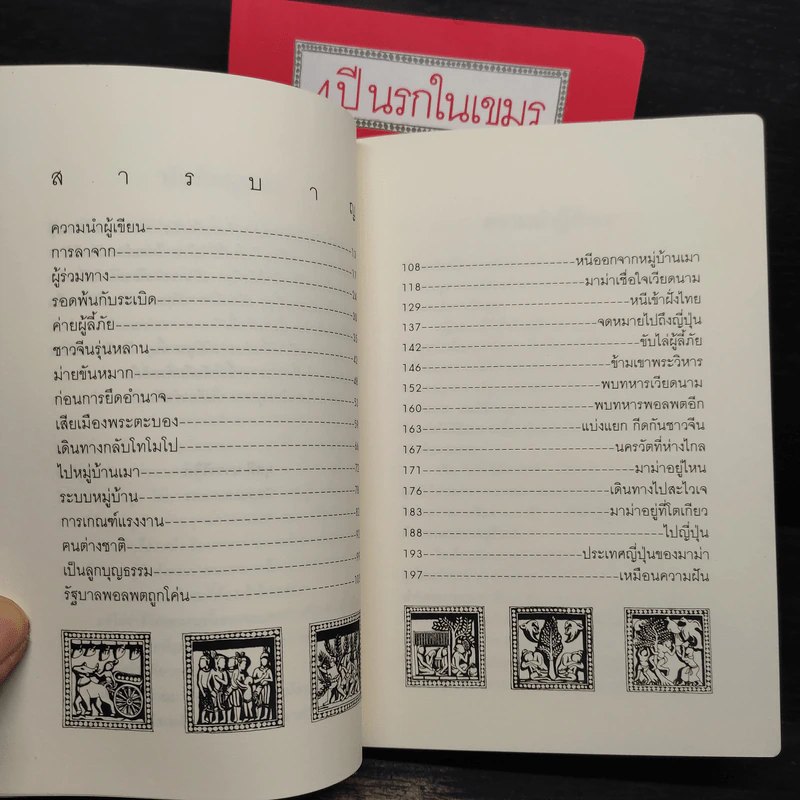 4 ปี นรกในเขมร
สารบาญ
ความนำผู้เขียน
การลาจาก
ผู้ร่วมทาง
รอดพ้นกับระเบิด
ค่ายผู้ลี้ภัย
ชาวจีนรุ่นหลาน
ม่ายขันหมาก
ก่อนการยึดอำนาจ
เสียเมืองพระตะบอง
เดินทางกลับโทโมโป
ไปหมู่บ้านเมา
ระบบหมู่บ้าน
การเกณฑ์แรงงาน
คนต่างชาติ
เป็นลูกบุญธรรม
รัฐบาลพอลพตถูกโค่น
108 หนีออกจากหมู่บ้านเมา
118 มาม่าเชื่อใจเวียดนาม
129 หนีเข้าฝั่งไทย
137 จดหมายไปถึงญี่ปุ่น
142 ขับไล่ผู้ลี้ภัย
146 ข้ามเขาพระวิหาร
152 พบทหารเวียดนาม
160 พบทหารพอลพตอีก
163 แบ่งแยก กีดกันชาวจีน
167 นครวัตที่ห่างไกล
171 มาม่าอยู่ไหน
176 เดินทางไปสะไวเจ
183 มาม่าอยู่ที่โตเกียว
188 ไปญี่ปุ่น
193 ประเทศญี่ปุ่นของมาม่า
197 เหมือนความฝัน